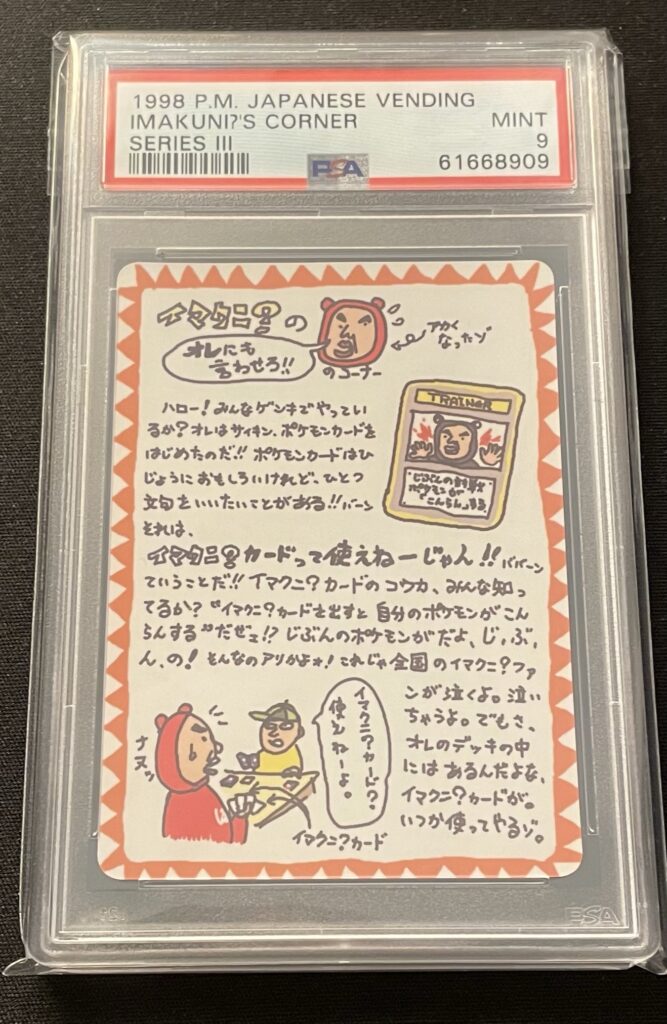 1998 P.M. JAPANESE VENDING
IMAKUNI?'S CORNER
MINT
SERIES III
9
PSA
61668909
イマクニ?の
オレにも
言わせろ!!
のコーナー
アカく
なったゾ
ハロー!みんなゲンキでやってい
るか?オレはサイキン、ポケモンカードを
はじめたのだ!!ポケモンカードはひ
じょうにおもしろいけれど、ひとつ
文句をいいたいことがある!!バーン
それは、
TRAINER
じぶんの対戦
ポケモンが
「こんらん」する
イマクニ?カードって使えねーじゃん!!ババーン
ていうことだ!!イマクニ?カードのコウカ、みんな知っ
てるか?“イマクニ?カードを出すと自分のポケモンがこん
らんする”だぜェ!?じぶんのポケモンがだよ、じ,ぶ,
ん,の!そんなのアリかよォ!これじゃ全国のイマクニ?ファ
ンが泣くよ。泣い
ちゃうよ。でもさ、
オレのデッキの中
にはあるんだよな、
イマクニ?カードが。
いつか使ってやるゾ。
イマクニ?カード?
使えねーよ。
ナヌッ
イマクニ?カード
PSA